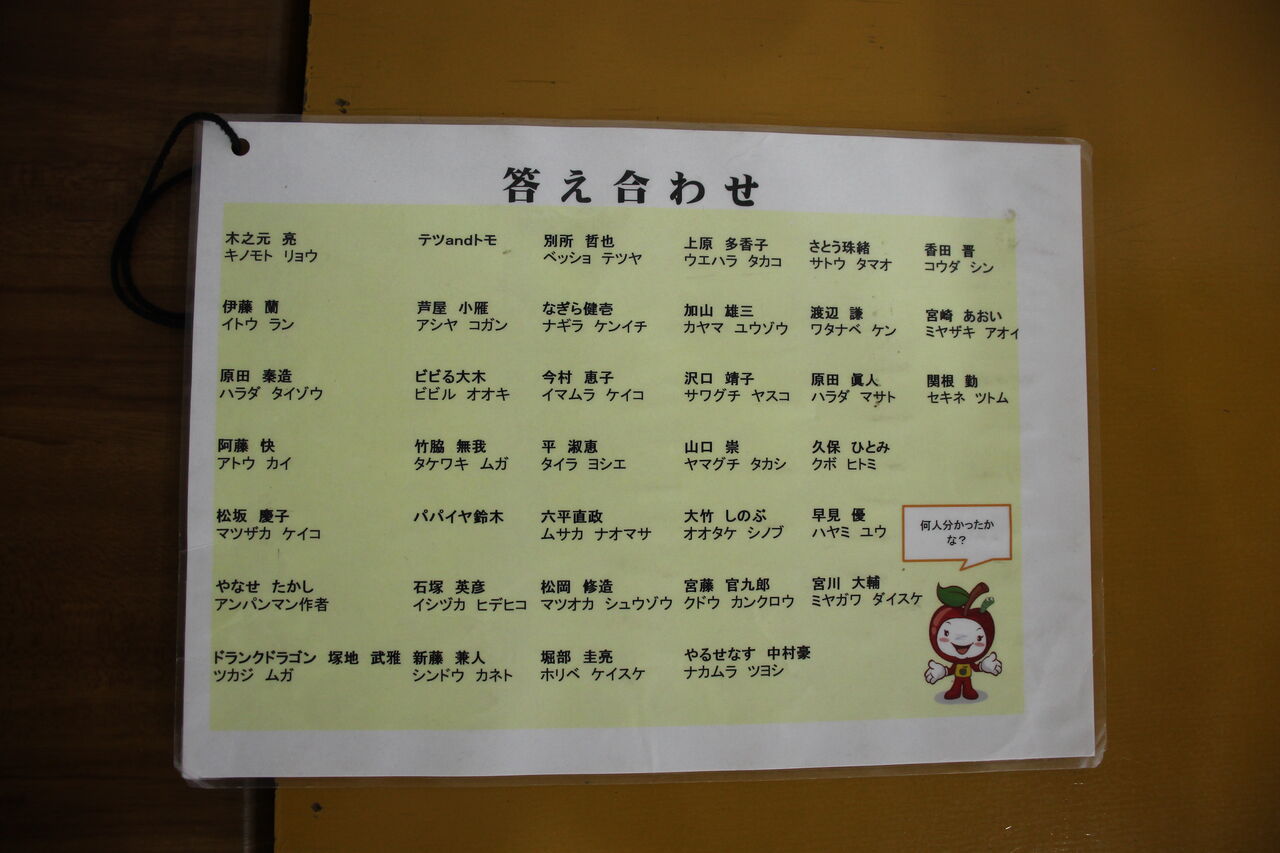 答え合わせ
木之元 亮 テツandトモ 別所 哲也 上原 多香子 さとう珠緒 香田 晋
キノモト リョウ ベッショ テツヤ ウエハラ タカコ サトウ タマオ コウダ シン
伊藤 蘭 芦屋 小雁 なぎら健壱 加山 雄三 渡辺 謙 宮崎 あおい
イトウ ラン アシヤ コガン ナギラ ケンイチ カヤマ ユウゾウ ワタナベ ケン ミヤザキ アオイ
原田 泰造 ビビる大木 今村 恵子 沢口 靖子 原田 眞人 関根 勤
ハラダ タイゾウ ビビル オオキ イマムラ ケイコ サワグチ ヤスコ ハラダ マサト セキネ ツトム
阿藤 快 竹脇 無我 平 淑恵 山口 崇 久保 ひとみ
アトウ カイ タケワキ ムガ タイラ ヨシエ ヤマグチ タカシ クボ ヒトミ
松坂 慶子 パパイヤ鈴木 六平直政 大竹 しのぶ 早見 優
マツザカ ケイコ ムサカ ナオマサ オオタケ シノブ ハヤミ ユウ
何人分かったか
な?
やなせ たかし 石塚 英彦 松岡 修造 宮藤 官九郎 宮川 大輔
アンパンマン作者 イシヅカ ヒデヒコ マツオカ シュウゾウ クドウ カンクロウ ミヤガワ ダイスケ
ドランクドラゴン 塚地 武雅 新藤 兼人 堀部 圭亮 やるせなす 中村豪
ツカジ ムガ シンドウ カネト ホリベ ケイスケ ナカムラ ツヨシ